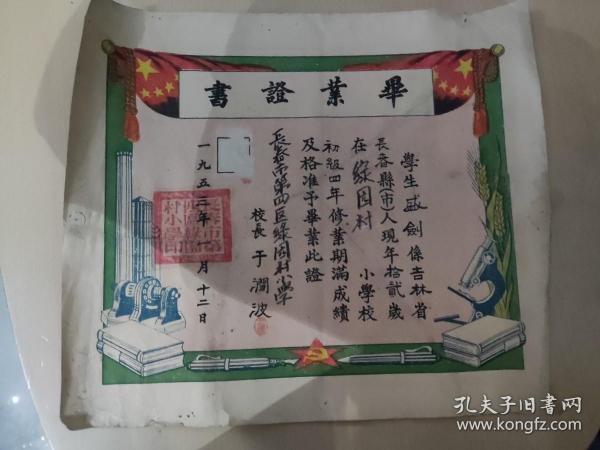 書證業畢
學生 劍 係吉林省
長春縣(市)人現年拾貳歲
在綠园村 小學校
初級四年修業期滿成績
及格准予畢業此證
長春市第四区綠园村小學
校長 于澗波
一九五三年 月十二日
孔夫子旧书网
www.kongfz.com